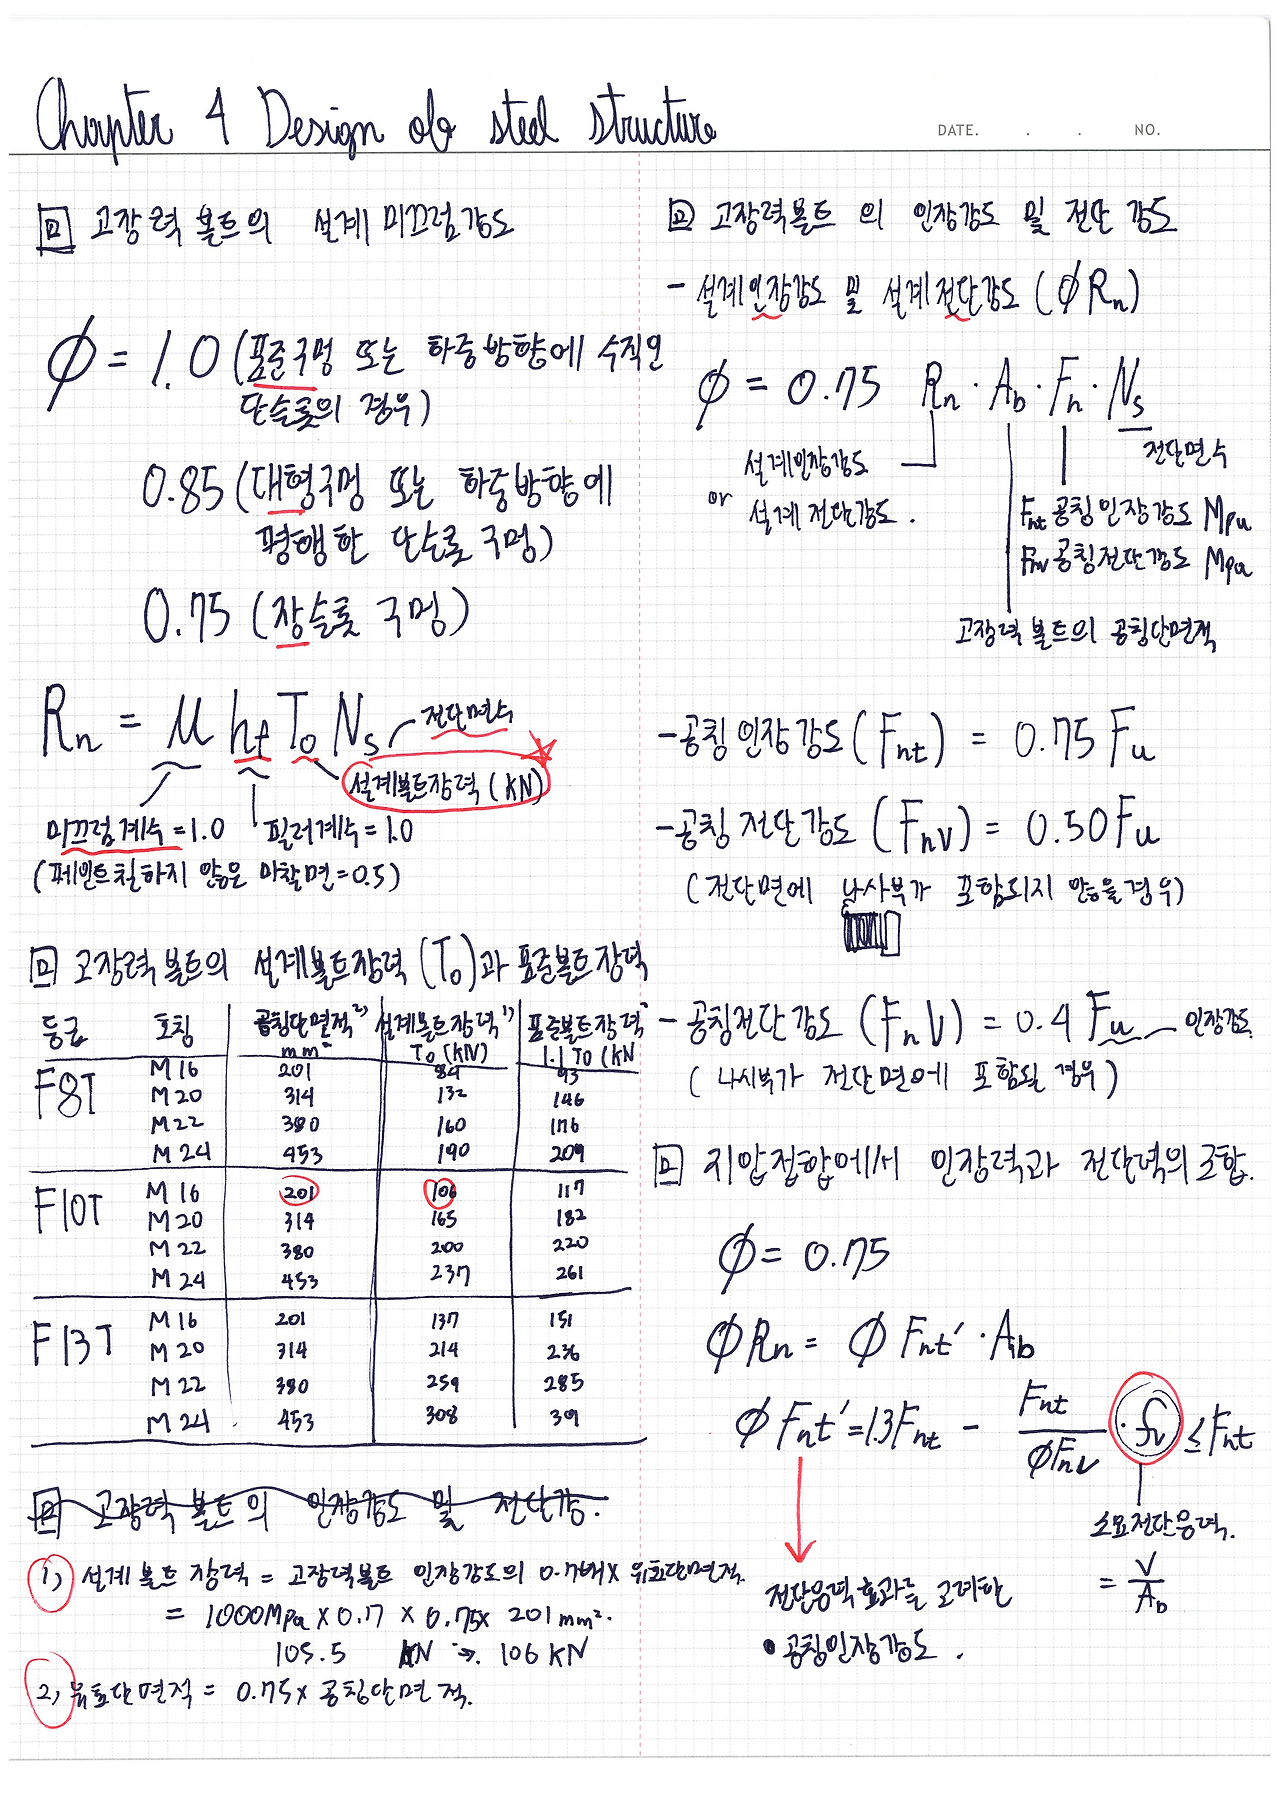 Chapter 4 Design of steel structure
DATE. . . NO.
고장력 볼트의 설계미끄럼강도
ϕ = 1.0 (표준구멍 또는 하중방향에 수직인
단슬롯의 경우)
0.85 (대형구멍 또는 하중방향에
평행한 단슬롯 구멍)
0.75 (장슬롯 구멍)
Rn = μ hf To Ns 전단면수
설계볼트장력 (KN)
미끄럼계수 = 1.0 필러계수 = 1.0
(페인트칠하지 않은 마찰면 = 0.5)
고장력 볼트의 설계볼트장력 (To)과 표준볼트장력
등급 호칭 공칭단면적 2) 설계볼트장력 1) 표준볼트장력
mm² To (KN) 1.1 To (KN
F8T M16 201 84 93
M20 314 132 146
M22 380 160 176
M24 453 190 209
F10T M16 201 106 117
M20 314 165 182
M22 380 200 220
M24 453 237 261
F13T M16 201 137 151
M20 314 214 236
M22 380 259 285
M24 453 308 39
고장력 볼트의 인장강도 및 전단강.
1) 설계볼트 장력 = 고장력볼트 인장강도의 0.7배 × 유효단면적.
= 1000Mpa × 0.17 × 0.75 × 201 mm².
105.5 KN ⇒. 106 KN
2) 유효단면적 = 0.75 × 공칭단면적.
고장력볼트의 인장강도 및 전단강도
- 설계인장강도 및 설계전단강도 (ϕRn)
ϕ = 0.75 Rn · Ab · Fn · Ns
전단면수
설계인장강도
or 설계전단강도.
Fnt 공칭인장강도 Mpa
Fnv 공칭전단강도 Mpa
고장력볼트의 공칭단면적
- 공칭인장강도 (Fnt) = 0.75 Fu
- 공칭전단강도 (Fnv) = 0.50 Fu
(전단면에 나사부가 포함되지 않을경우)
- 공칭전단강도 (FnV) = 0.4 Fu 인장강도.
(나사부가 전단면에 포함될 경우)
지압접합에서 인장력과 전단력의 조합.
ϕ = 0.75
ϕRn = ϕ Fnt′ · Ab
ϕ Fnt′ = 1.3Fnt - Fnt / ϕFnv · fv ≤ Fnt
소요전단응력.
= V / Ab
전단응력효과를 고려한
• 공칭인장강도.